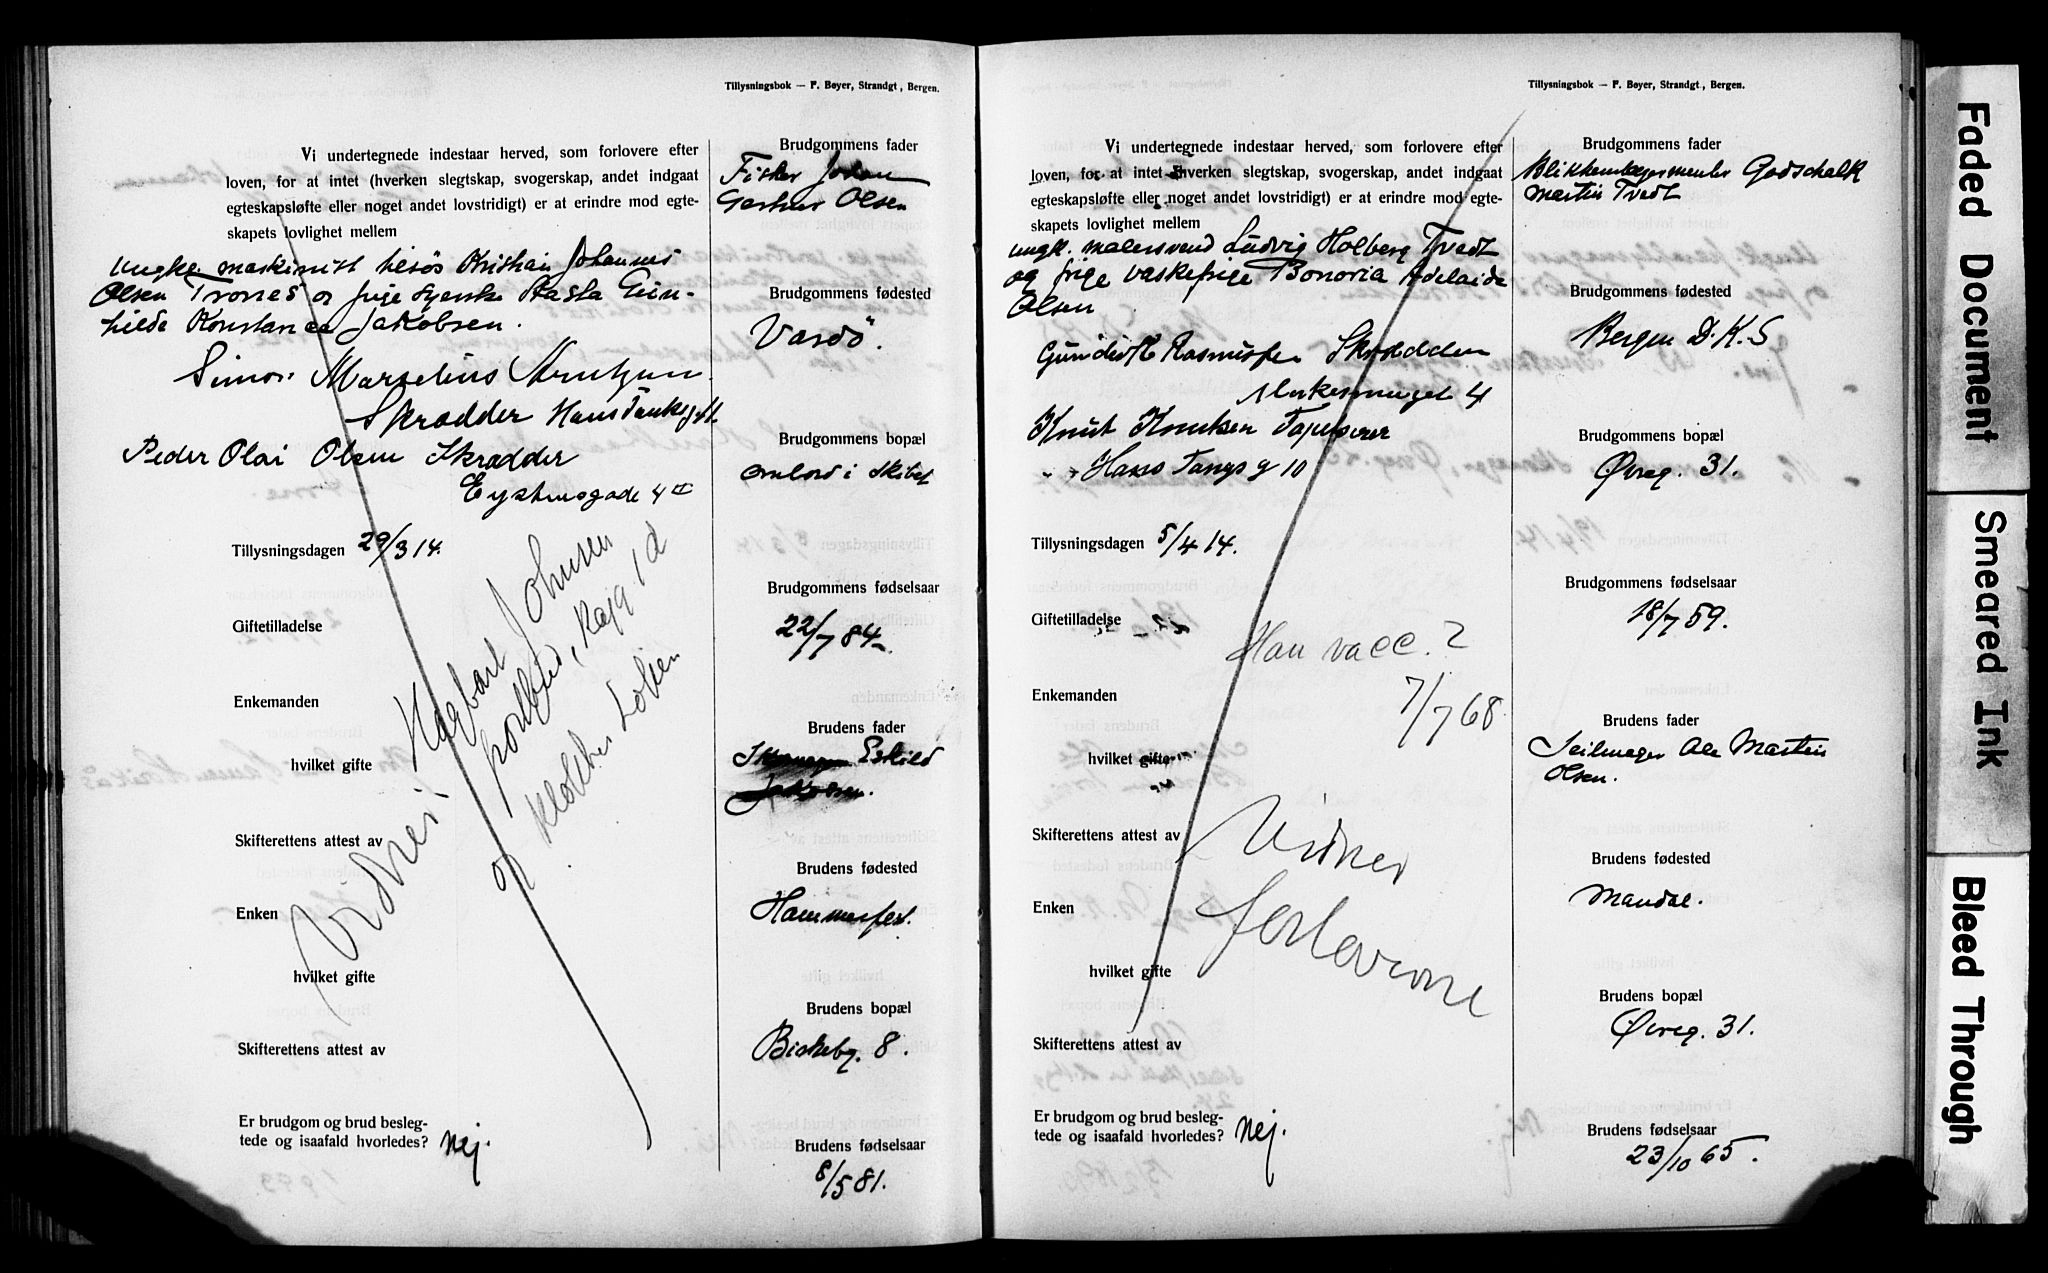 Tillysningsbok — F. Bøyer, Strandgt, Bergen.
Vi undertegnede indestaar herved, som forlovere efter
loven, for at intet (hverken slegtskap, svogerskap, andet indgaat
egteskapsløfte eller noget andet lovstridigt) er at erindre mod egte-
skapets lovlighet mellem
ungk. maskinist tilsös Kristian Johannes
Olsen Trones og pige Hjerske Aasta Gün-
hilda Konstance Jakobsen.
Simon Marselius Arntzen
Skrædder Hans Tanksgt
Peder Olai Olsen Skrædder
Eystensgade 4
Tillysningsdagen 29/3 14.
Giftetilladelse
Enkemanden
hvilket gifte
Skifterettens attest av
Enken
hvilket gifte
Skifterettens attest av
Er brudgom og brud besleg-
tede og isaafald hvorledes? Nej.
Vidner: Hagbart Johnsen
og klokker Lothen
Brudgommens fader
Fisker Johan
Olsen
Brudgommens fødested
Vardö.
Brudgommens bopæl
ombord i Skibet
Brudgommens fødselsaar
22/7 84
Brudens fader
Eskild
Jakobsen.
Brudens fødested
Hammerfest.
Brudens bopæl
Birkebg. 8.
Brudens fødselsaar
8/5 81.
Tillysningsbok — F. Bøyer, Strandgt, Bergen.
Vi undertegnede indestaar herved, som forlovere efter
loven, for at intet (hverken slegtskap, svogerskap, andet indgaat
egteskapsløfte eller noget andet lovstridigt) er at erindre mod egte-
skapets lovlighet mellem
ungk. malersvend Ludvig Holberg Tvedt
og pige vaskepige Bonoria Adelaide
Olsen
Rasmussen Skrædder
4
Knut Knutsen Tapeserer
Hans Tangs g 10
Tillysningsdagen 5/4 14.
Giftetilladelse
Han vacc. ?
Enkemanden
7/7 68
hvilket gifte
Skifterettens attest av
Vidner
forloverne
Enken
hvilket gifte
Skifterettens attest av
Er brudgom og brud besleg-
tede og isaafald hvorledes? Nej.
Brudgommens fader
Blikkenslagermester Godschalk
Martin Tvedt
Brudgommens fødested
Bergen D.K.S
Brudgommens bopæl
Øvreg. 31.
Brudgommens fødselsaar
18/7 59.
Brudens fader
Seilmager Ole Martin
Olsen.
Brudens fødested
Mandal.
Brudens bopæl
Øvreg. 31.
Brudens fødselsaar
23/10 65.
Faded Document
Smeared Ink
Bleed Through